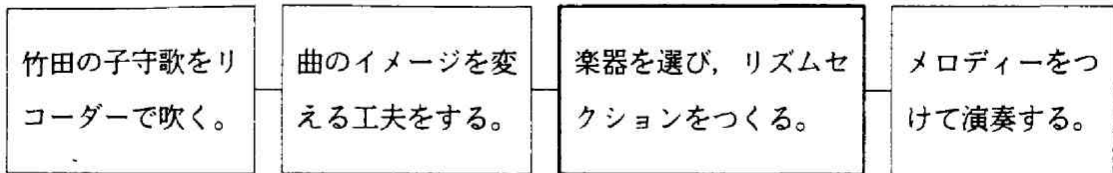 竹田の子守歌をリ
コーダーで吹く。
曲のイメージを変
える工夫をする。
楽器を選び，リズムセ
クションをつくる。
メロディーをつ
けて演奏する。